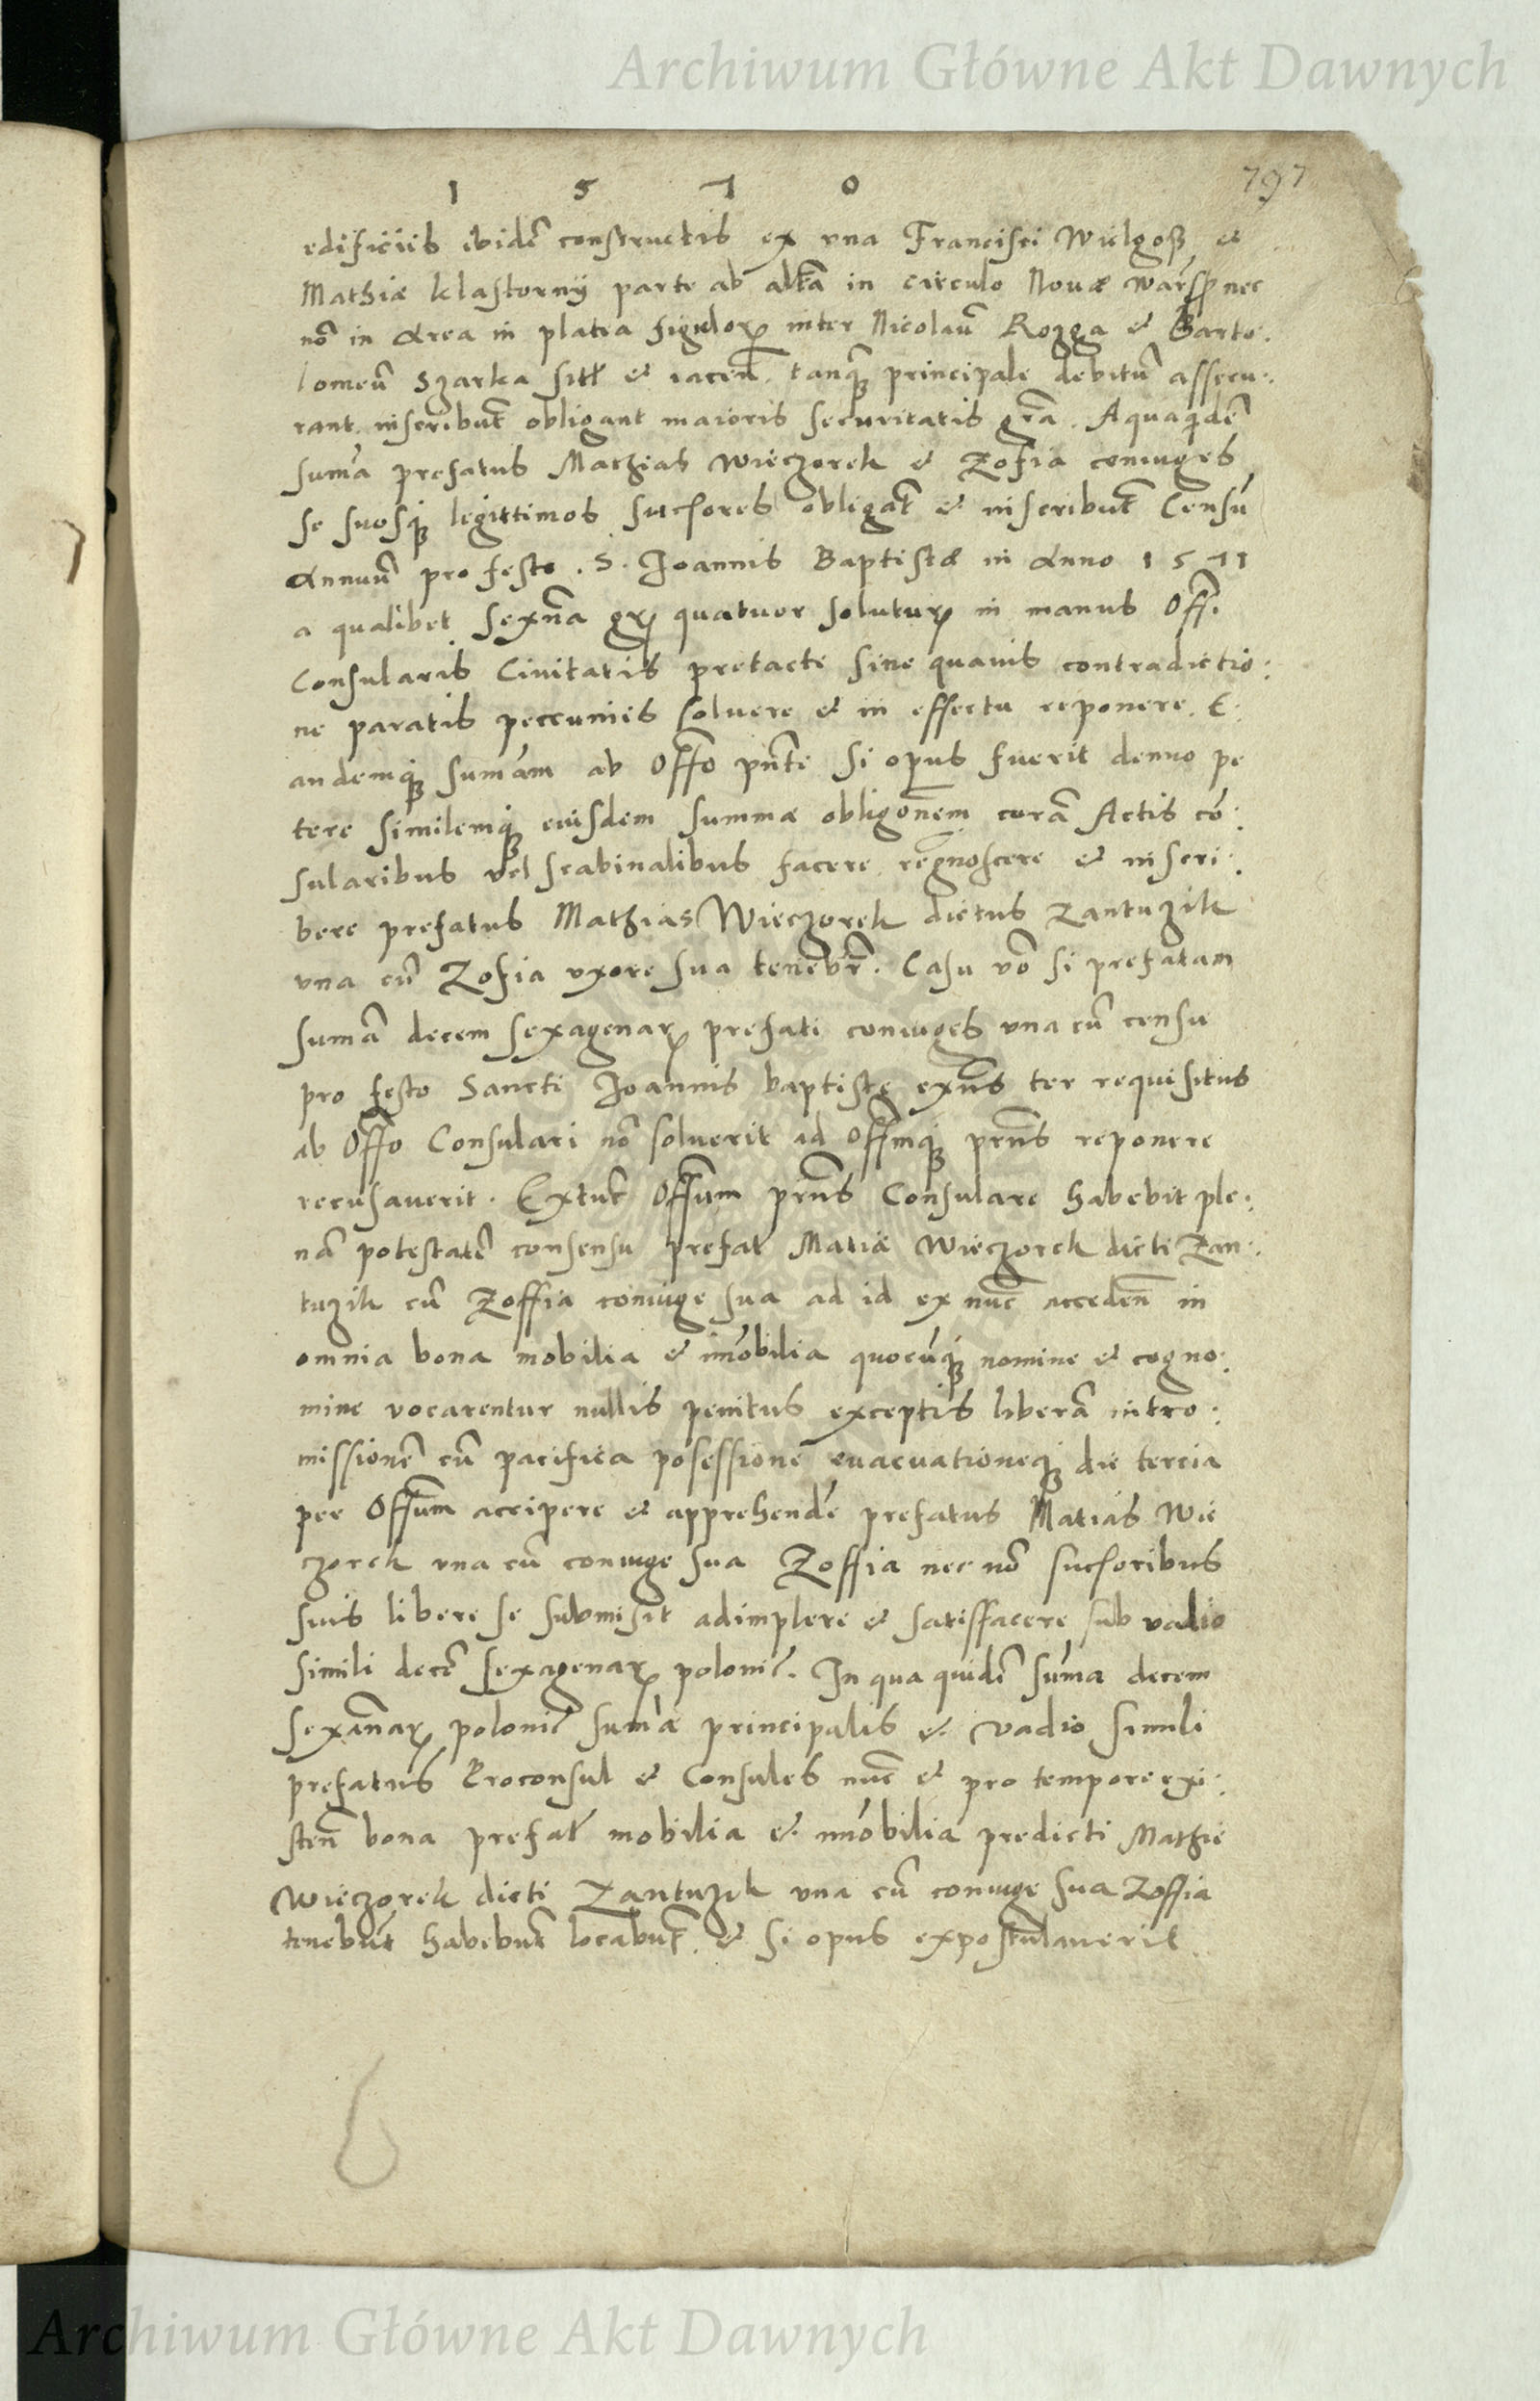 Archiwum Główne Akt Dawnych
1 5 7 0
797
edificiis ibidē constructis ex una Francisci Wielgosz et
Mathiæ klastornij parte ab altā in circulo Nouæ warß nec
nō in area in platea figulorꝝ inter Nicolaū Rozga et Barto:
lomeū Szarka sitł et iaceñ. tanqȝ principale debitū assecu:
rant inscribūt obligant maioris securitatis grā. Aquaqdē
sum̄a prefatus Mathias Wieczorek et Zofia coniuges
se suosqȝ legittimos sucsores obligāt et inscribūt Censū
Annuū pro festo. S. Joannis Baptistæ in Anno 1571
a qualibet sexna grꝝ quatuor soluturꝝ in manus Offi
Consularis Ciuitatis pretacte sine quauis contradictio:
ne paratis peccuniis soluere et in effectu reponere. E:
andemqȝ sum̄am ab Offō pn̄te si opus fuerit denuo pe
tere similemqȝ eiusdem summæ obligonem corā Actis cō:
sularibus vel scabinalibus facere regnoscere et inscri:
bere prefatus Mathias Wieczorek dictus Zantuzik
una cū Zofia uxore sua tenebr̄. Casu vō si prefatam
sum̄ā decem sexagenarꝝ prefati coniuges una cū censu
pro festo Sancti Joannis baptiste exn̄s ter requisitus
ab Offō Consulari nō soluerit ad Offmqȝ prn̄s reponere
recusauerit. Extūc Offium prn̄s Consulare habebit ple:
nā potestatē consensu prefat Matiæ Wieczorek dicti Zan:
tuzik cū Zoffia coniuge sua ad id ex nūc accedeñ in
omnia bona mobilia et im̄obilia quocūqȝ nomine et cogno:
mine vocarentur nullis penitus exceptis liberā intro:
missionē cū pacifica posessione euacuationeqȝ die tercia
per Offium accipere et apprehendē prefatus Matias Wie
czorek una cū coniuge sua Zoffia nec nō sucsoribus
suis libere se submisit adimplere et satisfacere sub vadio
simili decē sexagenarꝝ poloniē. In qua quidē sum̄a decem
sexānarꝝ poloniē sum̄æ principalis et vadio simili
prefatus Proconsul et Consules nūc et pro tempore exi:
steñ bona prefał mobilia et im̄obilia predicti Mathie
Wieczorek dicti Zantuzik una cū coniuge sua Zoffia
tenebūt habebūt locabūt. et si opus expostulauerit
Archiwum Główne Akt Dawnych